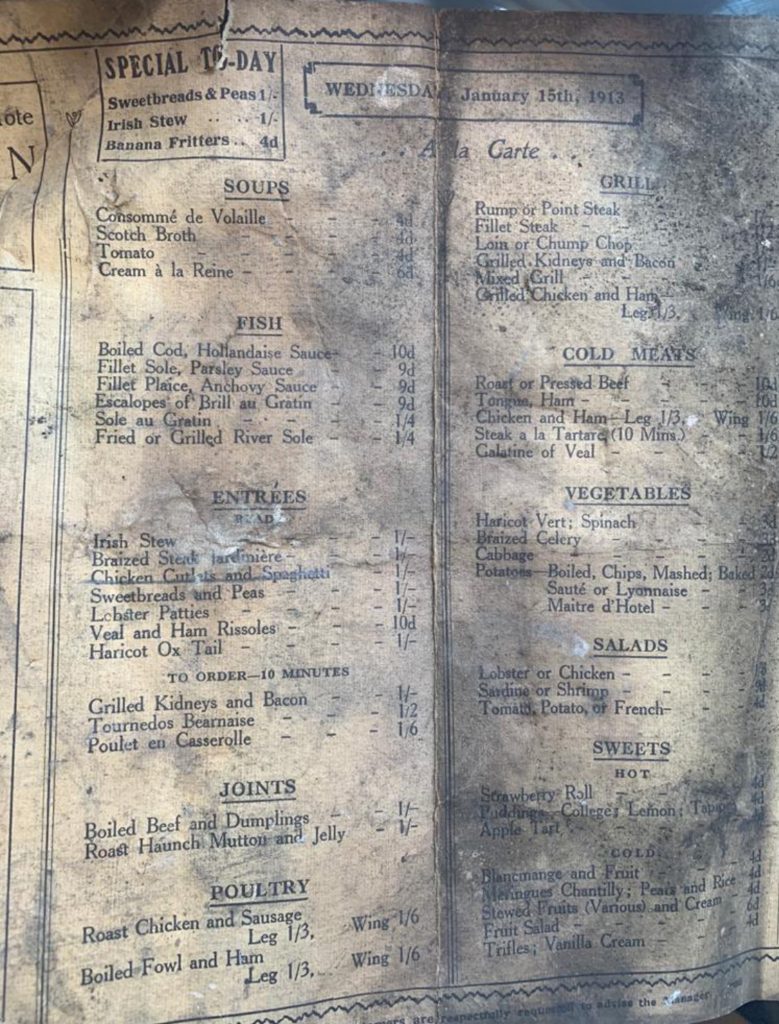 ote
N
SPECIAL TO-DAY
Sweetbreads & Peas 1/-
Irish Stew .. .. 1/-
Banana Fritters .. 4d
WEDNESDAY, January 15th, 1913
. . A la Carte . .
SOUPS
Consommé de Volaille - - - 4d
Scotch Broth - - - - 4d
Tomato - - - - - 4d
Cream à la Reine - - - - 6d
FISH
Boiled Cod, Hollandaise Sauce - - 10d
Fillet Sole, Parsley Sauce - - - 9d
Fillet Plaice, Anchovy Sauce - - 9d
Escalopes of Brill au Gratin - - 9d
Sole au Gratin - - - - 1/4
Fried or Grilled River Sole - - 1/4
ENTRÉES
READY
Irish Stew - - - - 1/-
Braized Steak Jardinière - - - 1/-
Chicken Cutlets and Spaghetti - - 1/-
Sweetbreads and Peas - - - 1/-
Lobster Patties - - - - 1/-
Veal and Ham Rissoles - - - 10d
Haricot Ox Tail - - - - 1/-
TO ORDER—10 MINUTES
Grilled Kidneys and Bacon - - 1/-
Tournedos Bearnaise - - - 1/2
Poulet en Casserolle - - - 1/6
JOINTS
Boiled Beef and Dumplings - - 1/-
Roast Haunch Mutton and Jelly - 1/-
POULTRY
Roast Chicken and Sausage
Leg 1/3, Wing 1/6
Boiled Fowl and Ham
Leg 1/3, Wing 1/6
GRILL
Rump or Point Steak
Fillet Steak
Loin or Chump Chop
Grilled Kidneys and Bacon
Mixed Grill - - 1/6
Grilled Chicken and Ham—
Leg 1/3, Wing 1/6
COLD MEATS
Roast or Pressed Beef - - - 10d
Tongue, Ham - - - - 10d
Chicken and Ham—Leg 1/3, Wing 1/6
Steak a la Tartare (10 Mins.) - - 1/6
Galatine of Veal - - - - 1/2
VEGETABLES
Haricot Vert; Spinach - - - 3d
Braized Celery - - -
Cabbage - - - - 2d
Potatoes—Boiled, Chips, Mashed; Baked 2d
Sauté or Lyonnaise - - 3d
Maitre d'Hotel - -
SALADS
Lobster or Chicken - - -
Sardine or Shrimp - - -
Tomato, Potato, or French - - 4d
SWEETS
HOT
Strawberry Roll - - - 4d
Puddings—College; Lemon; 4d
Apple Tart - - - 4d
COLD
Blancmange and Fruit - - 4d
Meringues Chantilly; Pears and Rice 4d
Stewed Fruits (Various) and Cream - 6d
Fruit Salad - - - - 4d
Trifles; Vanilla Cream - -
are respectfully requested to advise the Manager